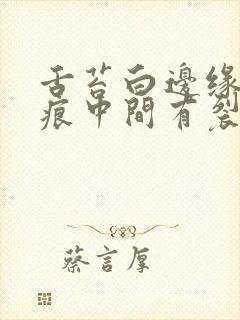 舌苔白邊緣
痕中間有裂
蔡言厚